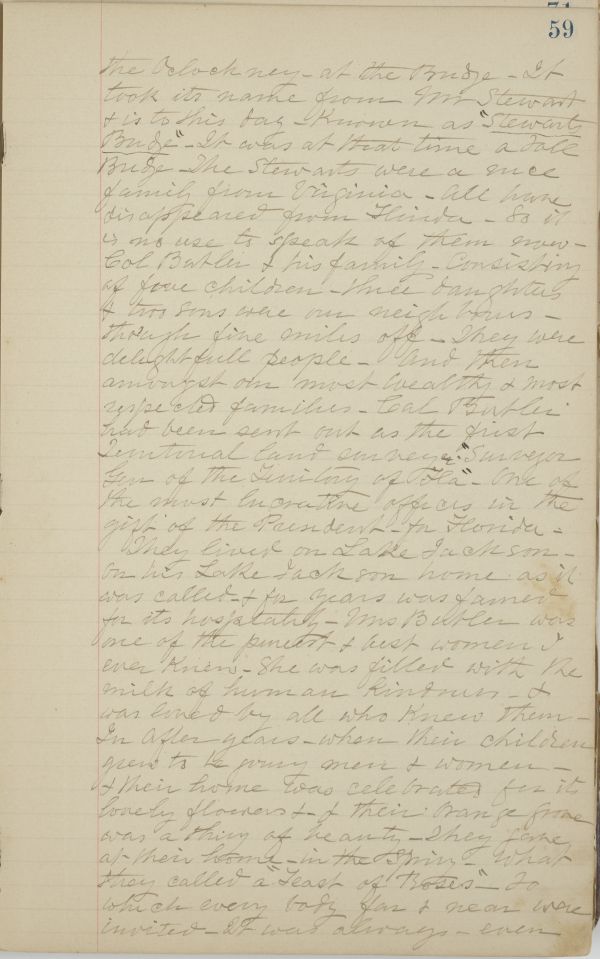 59
the Oclockney - at the Bridge - It
took its name from Mr Stewart
& is to this day - Known as "Stewarts
Bridge" - It was at that time a Toll
Bridge - The Stewarts were a nice
family from Virginia - all have
disappeared from Florida - So it
is no use to speak of them now -
Col Butler & his family - Consisting
of five children - three daughters
& two sons were our neighbours -
though five miles off - They were
delightfull people - And then
amongst our most wealthy & most
respected families - Col Butler
had been sent out as the first
Territorial land surveyer. "Surveyor
Gen of the Territory of Fla" - One of
the most lucrative offices in the
gift of the President - for Florida -
They lived on Lake Jackson -
on his Lake Jackson home as it
was called - & for years was famed
for its hospitality - Mrs Butler was
one of the purest & best women I
ever Knew - She was filled with the
milk of human Kindness - &
was loved by all who Knew them -
In after years - when their children
grew to be young men & women -
& their home was celebrated for its
lovely flowers & - & their Orange grove
was a thing of beauty - They gave
at their home - in the Spring - What
they called a "Feast of Roses" - to
which every body far & near were
invited - It was always - even